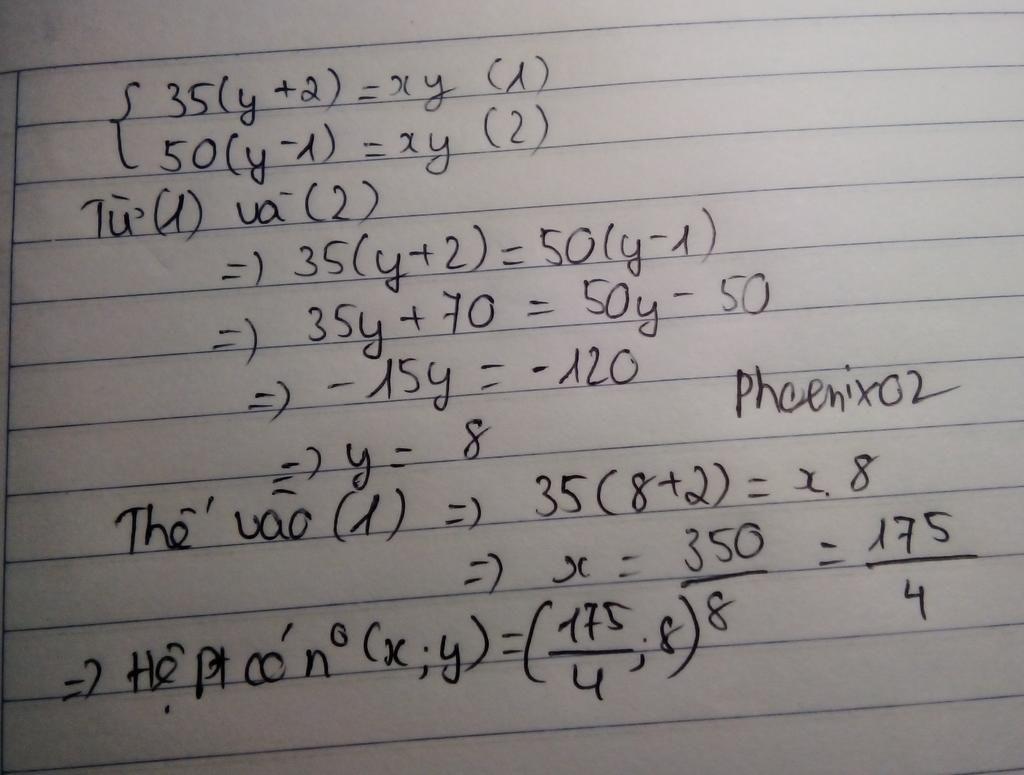 { 35(y+2) = xy (1)
50(y-1) = xy (2)
Từ (1) và (2)
=) 35(y+2) = 50(y-1)
=) 35y + 70 = 50y - 50
=) -15y = -120
Phoenix02
=) y = 8
Thế vào (1) =) 35(8+2) = x.8
=) x = 350/8 = 175/4
=) Hệ pt có n⁰ (x;y) = (175/4; 8)